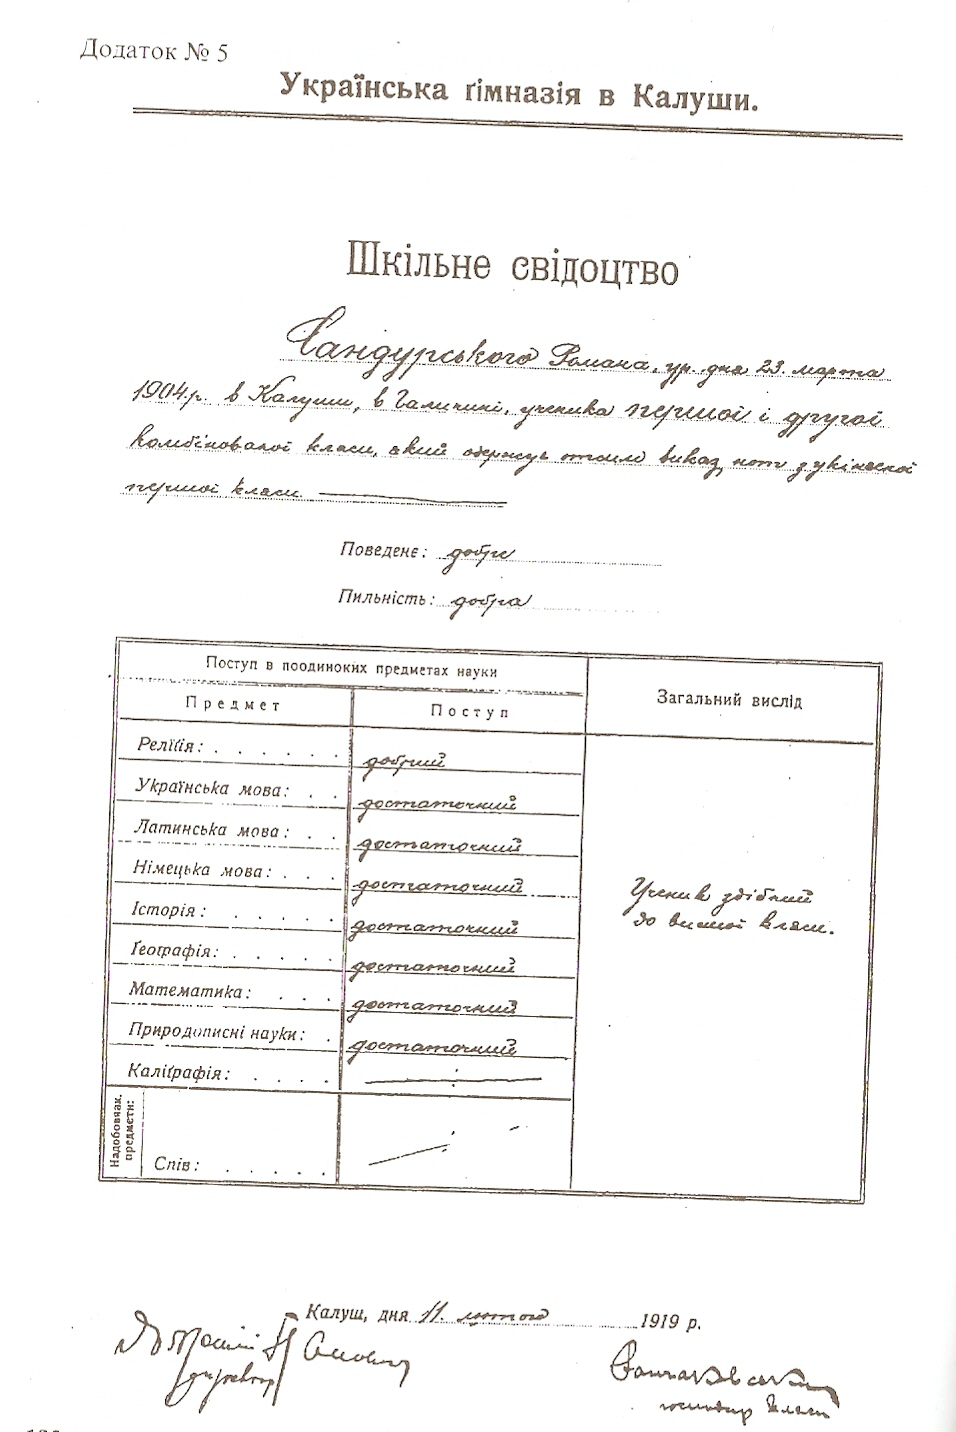 Додаток № 5
Українська ґімназія в Калуши.
Шкільне свідоцтво
Сандурського Романа, ур. дня 23. марта
1904.р. в Калуши, в Галичині, ученика першої і другої
комбінованої класи, який одержує отсим виказ нот з укінченої
першої класи
Поведене: добре
Пильність: добра
Поступ в поодиноких предметах науки
Загальний вислід
Предмет Поступ
Релїґія: . . . . . . добрий
Українська мова: . . достаточний
Латинська мова: . . достаточний
Німецька мова: . . . достаточний
Історія: . . . . . достаточний
Ґеоґрафія: . . . . . достаточний
Математика: . . . достаточний
Природописні науки: . достаточний
Каліґрафія: . . . .
Ученик здібний
до висшої класи.
Надобовяк. предмети:
Спів: . . . . .
Калуш, дня 11. лютого 1919 р.
директор
господар класи